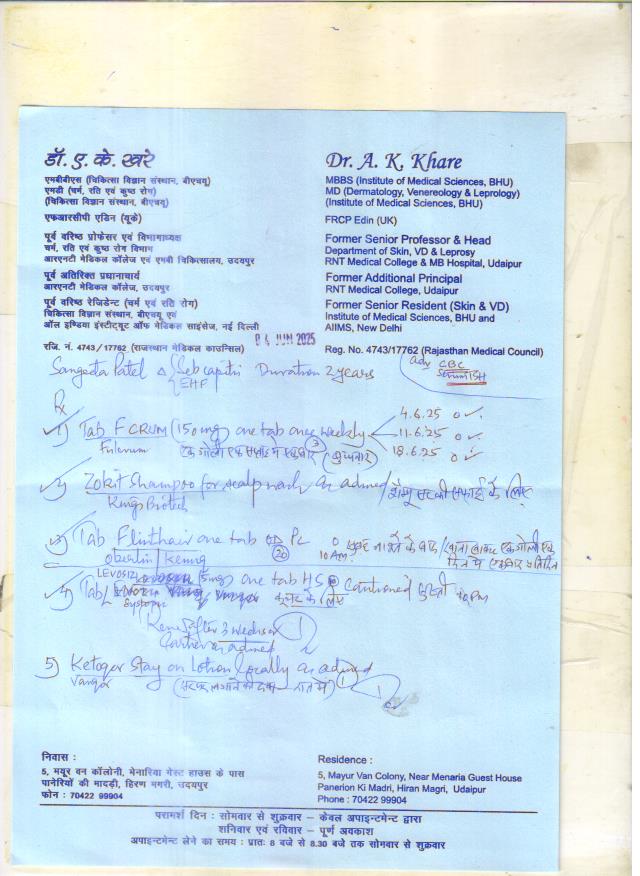 डॉ. ए. के. खरे
एमबीबीएस (चिकित्सा विज्ञान संस्थान, बीएचयू)
एमडी (चर्म, रति एवं कुष्ठ रोग)
(चिकित्सा विज्ञान संस्थान, बीएचयू)
एफआरसीपी एडिन (यूके)
पूर्व वरिष्ठ प्रोफेसर एवं विभागाध्यक्ष
चर्म, रति एवं कुष्ठ रोग विभाग
आरएनटी मेडिकल कॉलेज एवं एमबी चिकित्सालय, उदयपुर
पूर्व अतिरिक्त प्रधानाचार्य
आरएनटी मेडिकल कॉलेज, उदयपुर
पूर्व वरिष्ठ रेजिडेन्ट (चर्म एवं रति रोग)
चिकित्सा विज्ञान संस्थान, बीएचयू एवं
ऑल इण्डिया इंस्टीट्यूट ऑफ मेडिकल साइंसेज, नई दिल्ली
रजि. नं. 4743/17762 (राजस्थान मेडिकल काउन्सिल)
Dr. A. K. Khare
MBBS (Institute of Medical Sciences, BHU)
MD (Dermatology, Venereology & Leprology)
(Institute of Medical Sciences, BHU)
FRCP Edin (UK)
Former Senior Professor & Head
Department of Skin, VD & Leprosy
RNT Medical College & MB Hospital, Udaipur
Former Additional Principal
RNT Medical College, Udaipur
Former Senior Resident (Skin & VD)
Institute of Medical Sciences, BHU and
AIIMS, New Delhi
Reg. No. 4743/17762 (Rajasthan Medical Council)
04 JUN 2025
Sangeeta Patel Δ Seb capitis Duration 2 years
EHF
Adv CBC
Serum TSH
Rx
1) Tab FCRUM (150 mg) one tab once weekly
4.6.25
11.6.25
18.6.25
Fulcrum एक गोली एक सप्ताह में एक बार (3) (बुधवार)
2) Zokit Shampoo for scalp wash as advised / शैम्पू सर की सफाई के लिए
Kings Biotech
3) Tab Flinthair one tab OD PC
(20) 10 Am
oberlin
4) Tab LEVOSIZ (5mg) one tab HS Cautioned 10 pm
Systopic
after 3 weeks or
earlier as advised
5) Ketogar Stay on Lotion locally as advised
(सर पर लगाने की दवा - रात में) 1
निवास :
5, मयूर वन कॉलोनी, मेनारिया गेस्ट हाउस के पास
पानेरियों की मादड़ी, हिरण मगरी, उदयपुर
फोन : 70422 99904
Residence :
5, Mayur Van Colony, Near Menaria Guest House
Panerion Ki Madri, Hiran Magri, Udaipur
Phone : 70422 99904
परामर्श दिन : सोमवार से शुक्रवार – केवल अपाइन्टमेन्ट द्वारा
शनिवार एवं रविवार – पूर्ण अवकाश
अपाइन्टमेन्ट लेने का समय : प्रातः 8 बजे से 8.30 बजे तक सोमवार से शुक्रवार